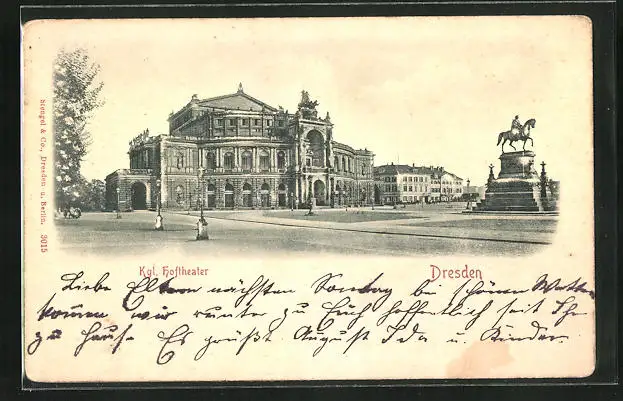 Stengel & Co., Dresden u. Berlin. 3015
Kgl. Hoftheater
Dresden
Liebe Eltern nächsten Sonntag bei schönen Wetter
kommen wir runter zu Euch hoffentlich seit Ihr
zu Hause. Es grüßt August Ida u. Kinder.